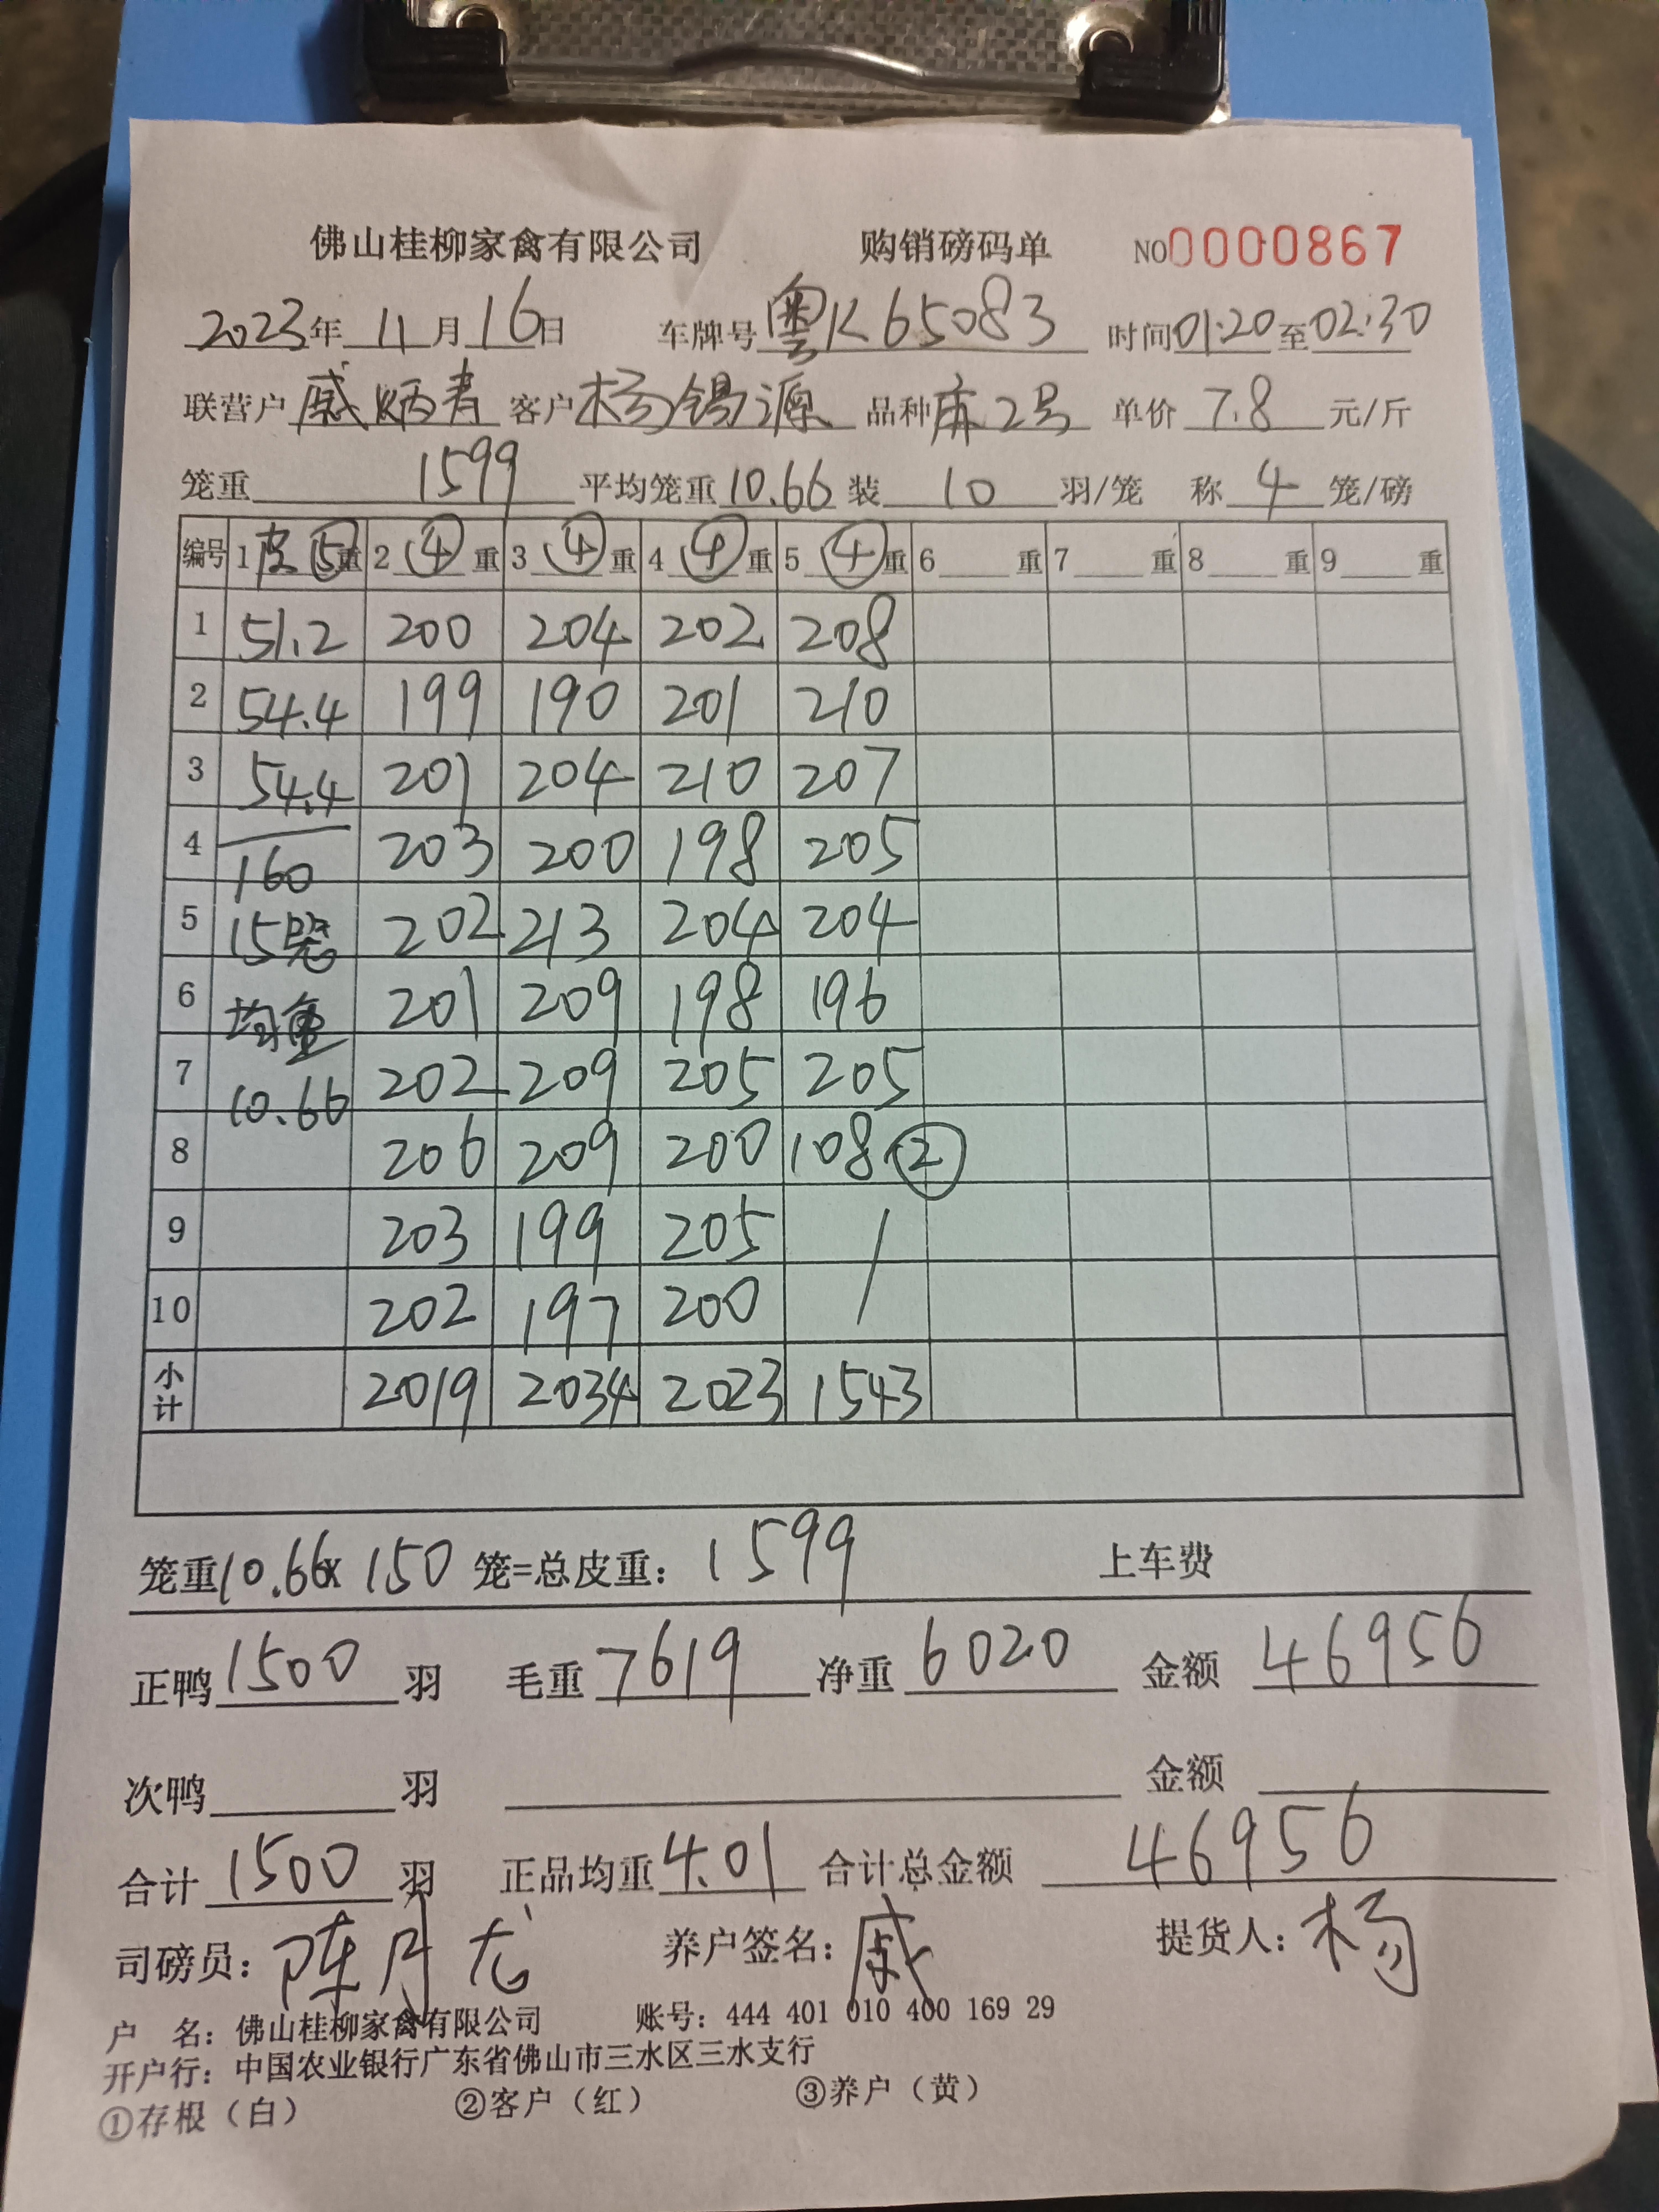 佛山桂柳家禽有限公司 购销磅码单 NO0000867
2023年 11月16日 车牌号粤K65083 时间01:20至02:30
联营户戚炳青 客户杨锡源 品种麻2号 单价7.8元/斤
笼重1599 平均笼重10.66 装10羽/笼 称4笼/磅
编号 1皮⑤重 2④重 3④重 4④重 5④重 6重 7重 8重 9重
1 51.2 200 204 202 208
2 54.4 199 190 201 210
3 54.4 201 204 210 207
4 160 203 200 198 205
5 15笼 202 213 204 204
6 均重 201 209 198 196
7 10.66 202 209 205 205
8 206 209 200 108②
9 203 199 205 /
10 202 197 200
小计 2019 2034 2023 1543
笼重10.66x150笼=总皮重：1599 上车费
正鸭1500羽 毛重7619 净重6020 金额46956
次鸭 羽 金额
合计1500羽 正品均重4.01 合计总金额46956
司磅员：陈月龙 养户签名：戚 提货人：杨
户 名：佛山桂柳家禽有限公司 账号：444 401 010 400 169 29
开户行：中国农业银行广东省佛山市三水区三水支行
①存根（白） ②客户（红） ③养户（黄）